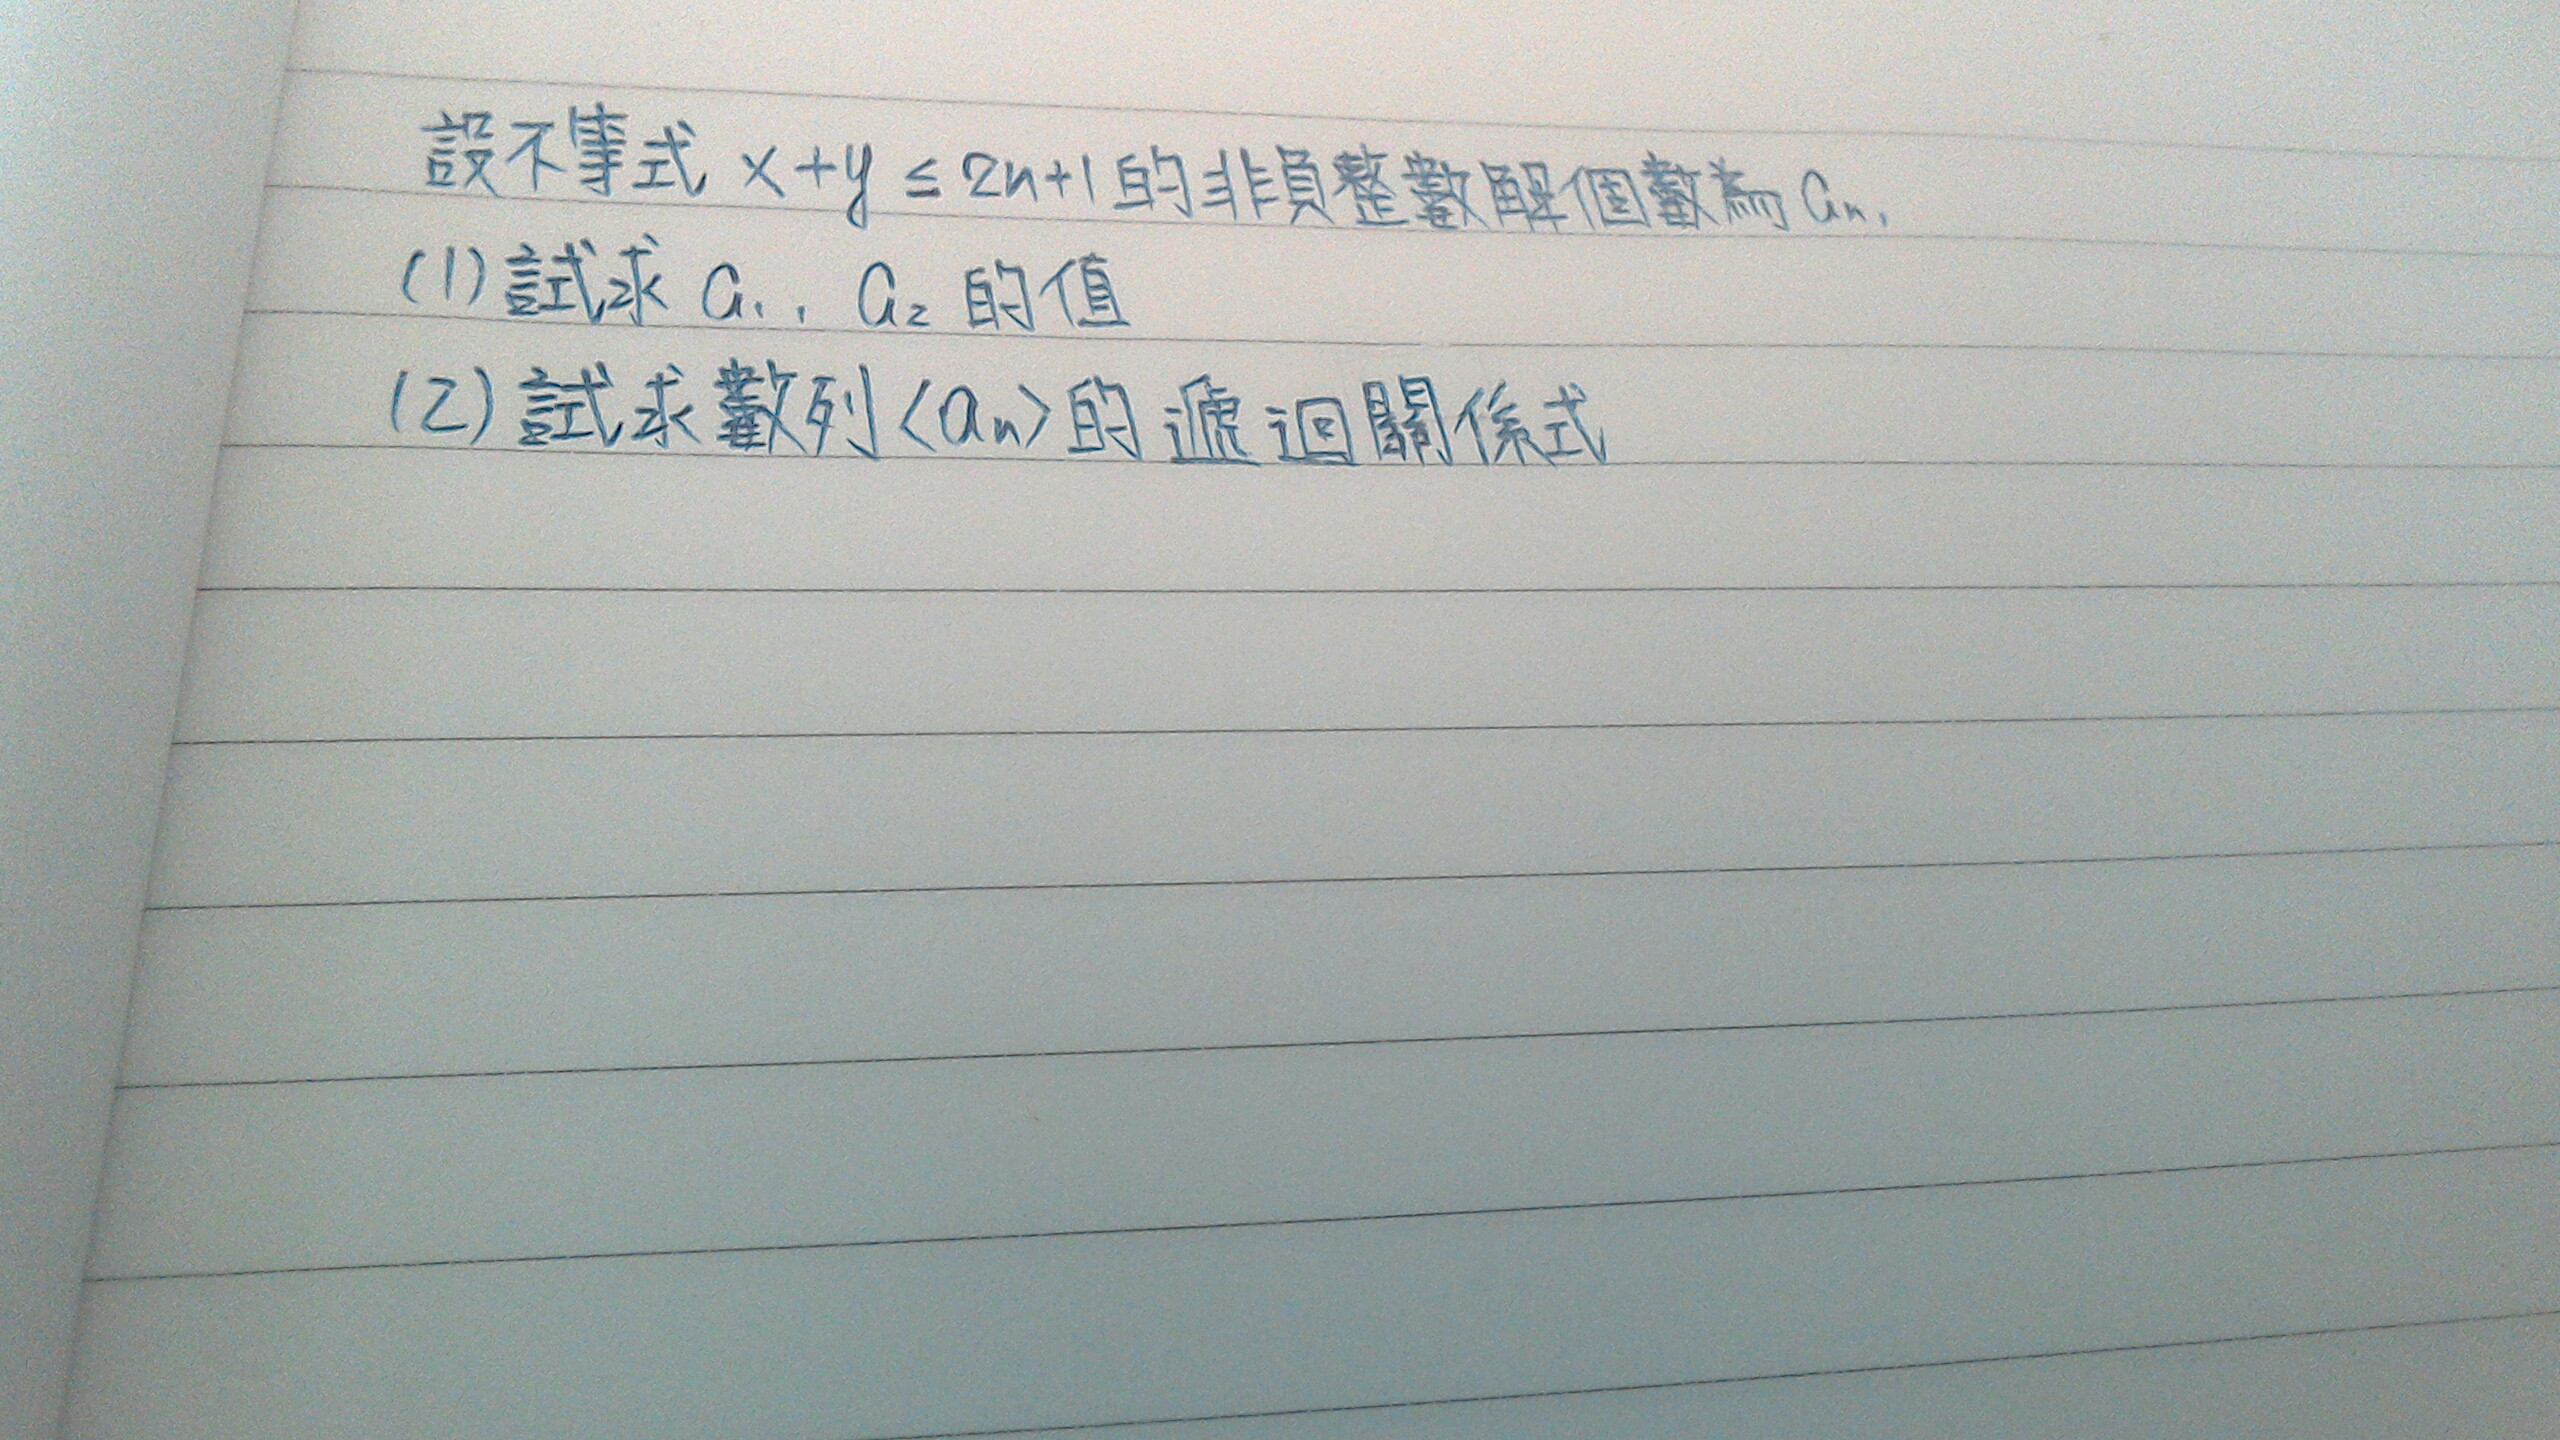 設不等式 x+y ≤ 2n+1 的非負整數解個數為 aₙ,
(1) 試求 a₁, a₂ 的值
(2) 試求數列〈aₙ〉的遞迴關係式